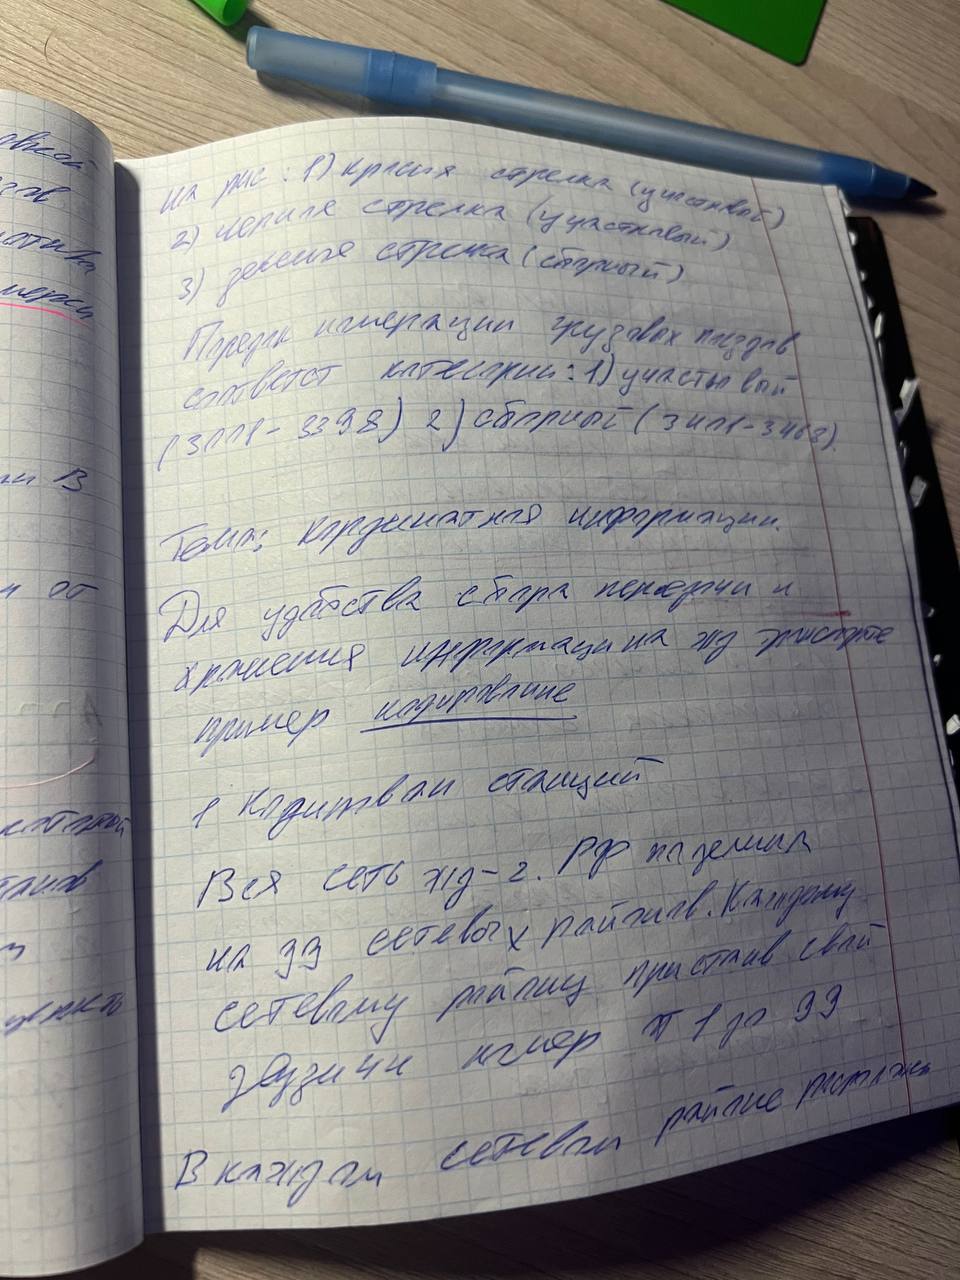 овкой
гов
На рис: 1) красная стрелка (участковый)
2) черная стрелка (участковый)
3) зеленая стрелка (сборный)
Порядок нумерации грузовых поездов
соответст категории: 1) участковый
(3001-3398) 2) сборный (3401-3463).
ии в
Тема: Координатная информации.
и от
Для удобства сбора передачи и
хранения информации на жд транспорте
пример кодирование
1 Кодирован станций
которой
Вся сеть жд-г. РФ поделила
на 99 сетевых районов. Каждому
сетевому району пристаив свой
двузначн номер от 1 до 99
В каждом сетевом районе располож